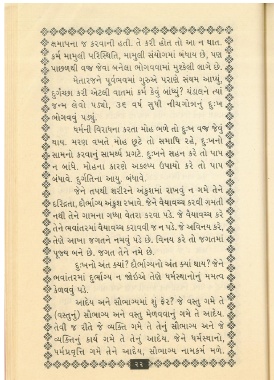 ક્ષમાપના જ કરવાની હતી. તે કરી હોત તો આ ન થાત.
કર્મ મામુલી પરિસ્થિતિ, મામુલી સંયોગમાં બંધાય છે, પણ
પાછળથી વજ્ર જેવા બનેલા ભોગવવામાં મુશ્કેલી લાગે છે.
મેતારજને પૂર્વભવમાં ગુરુએ પરાણે સંયમ આપ્યું,
દુર્ગંછા કરી એટલી વાતમાં કર્મ કેવું બાંધ્યું? ચંડાલને ત્યાં
જન્મ લેવો પડ્યો, ૩૬ વર્ષ સુધી નીચગોત્રનું દુઃખ
ભોગવવું પડ્યું.
ધર્મની વિરાધના કરતા મોહ ભળે તો દુઃખ વજ્ર જેવું
થાય. મરણ વખતે મોહ છૂટે તો સમાધિ રહે, દુઃખનો
સામનો કરવાનું સામર્થ્ય પ્રગટે. દુઃખને સહન કરે તો પાપ
ન બાંધે. મોહના કારણે અકલ્પ્ય ઉપાયો કરે તો પાપ
બંધાવે. દુર્ગતિના આયુ. બંધાવે.
જેને તપથી શરીરને અંકુશમાં રાખવું ન ગમે તેને
દરિદ્રતા, દૌર્ભાગ્ય અંકુશ રખાવે. જેને વૈયાવચ્ચ કરવી ગમતી
નથી તેને ગામના ગધ્ધા વૈતરા કરવા પડે. જે વૈયાવચ્ચ કરે
તેને ભવાંતરમાં વૈયાવચ્ચ કરાવવી જ ન પડે. જે અવિનય કરે,
તેણે આખા જગતને નમવું પડે છે. વિનય કરે તો જગતમાં
પૂજ્ય બને છે. જગત તેને નમે છે.
દુઃખનો અંત ક્યાં? દૌર્ભાગ્યનો અંત ક્યાં થાય? જેને
ભવાંતરમાં દુર્ભાગ્ય ન જોઇએ તેણે ધર્મસ્થાનોનું મમત્વ
કેળવવું પડે.
આદેય અને સૌભાગ્યમાં શું ફેર? જે વસ્તુ ગમે તે
(વસ્તુનું) સૌભાગ્ય અને વસ્તુ મેળવવાનું ગમે તે આદેય.
તેવી જ રીતે જે વ્યક્તિ ગમે તે તેનું સૌભાગ્ય અને જે
વ્યક્તિનું કાર્ય ગમે તે તેનું આદેય. જેને ધર્મસ્થાનો,
ધર્મપ્રવૃત્તિ ગમે તેને આદેય, સૌભાગ્ય નામકર્મ મળે.
૨૨